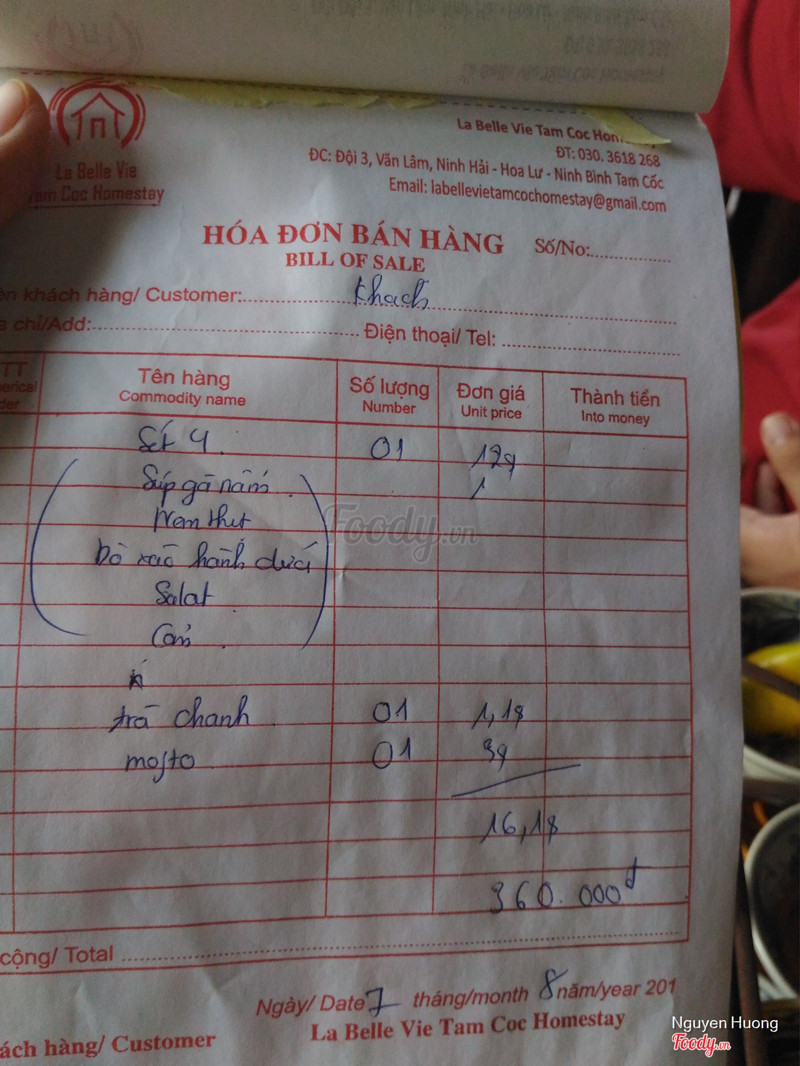 La Belle Vie
Tam Coc Homestay
La Belle Vie Tam Coc Homestay
ĐT: 030. 3618 268
ĐC: Đội 3, Văn Lâm, Ninh Hải - Hoa Lư - Ninh Bình Tam Cốc
Email: labellevietamcochomestay@gmail.com
HÓA ĐƠN BÁN HÀNG Số/No:
BILL OF SALE
khách hàng/ Customer: Khách
chỉ/Add: Điện thoại/ Tel:
TT Tên hàng Số lượng Đơn giá Thành tiền
Commodity name Number Unit price Into money
Set 4 01 12$
Súp gà nấm
Nem thịt
bò xào hành dứa
Salat
Cơm
trà chanh 01 1,1$
mojto 01 3$
16,1$
360.000đ
cộng/ Total
Ngày/ Date 7 tháng/month 8 năm/year 201
La Belle Vie Tam Coc Homestay
ách hàng/ Customer
Foody.vn
Nguyen Huong
Foody.vn